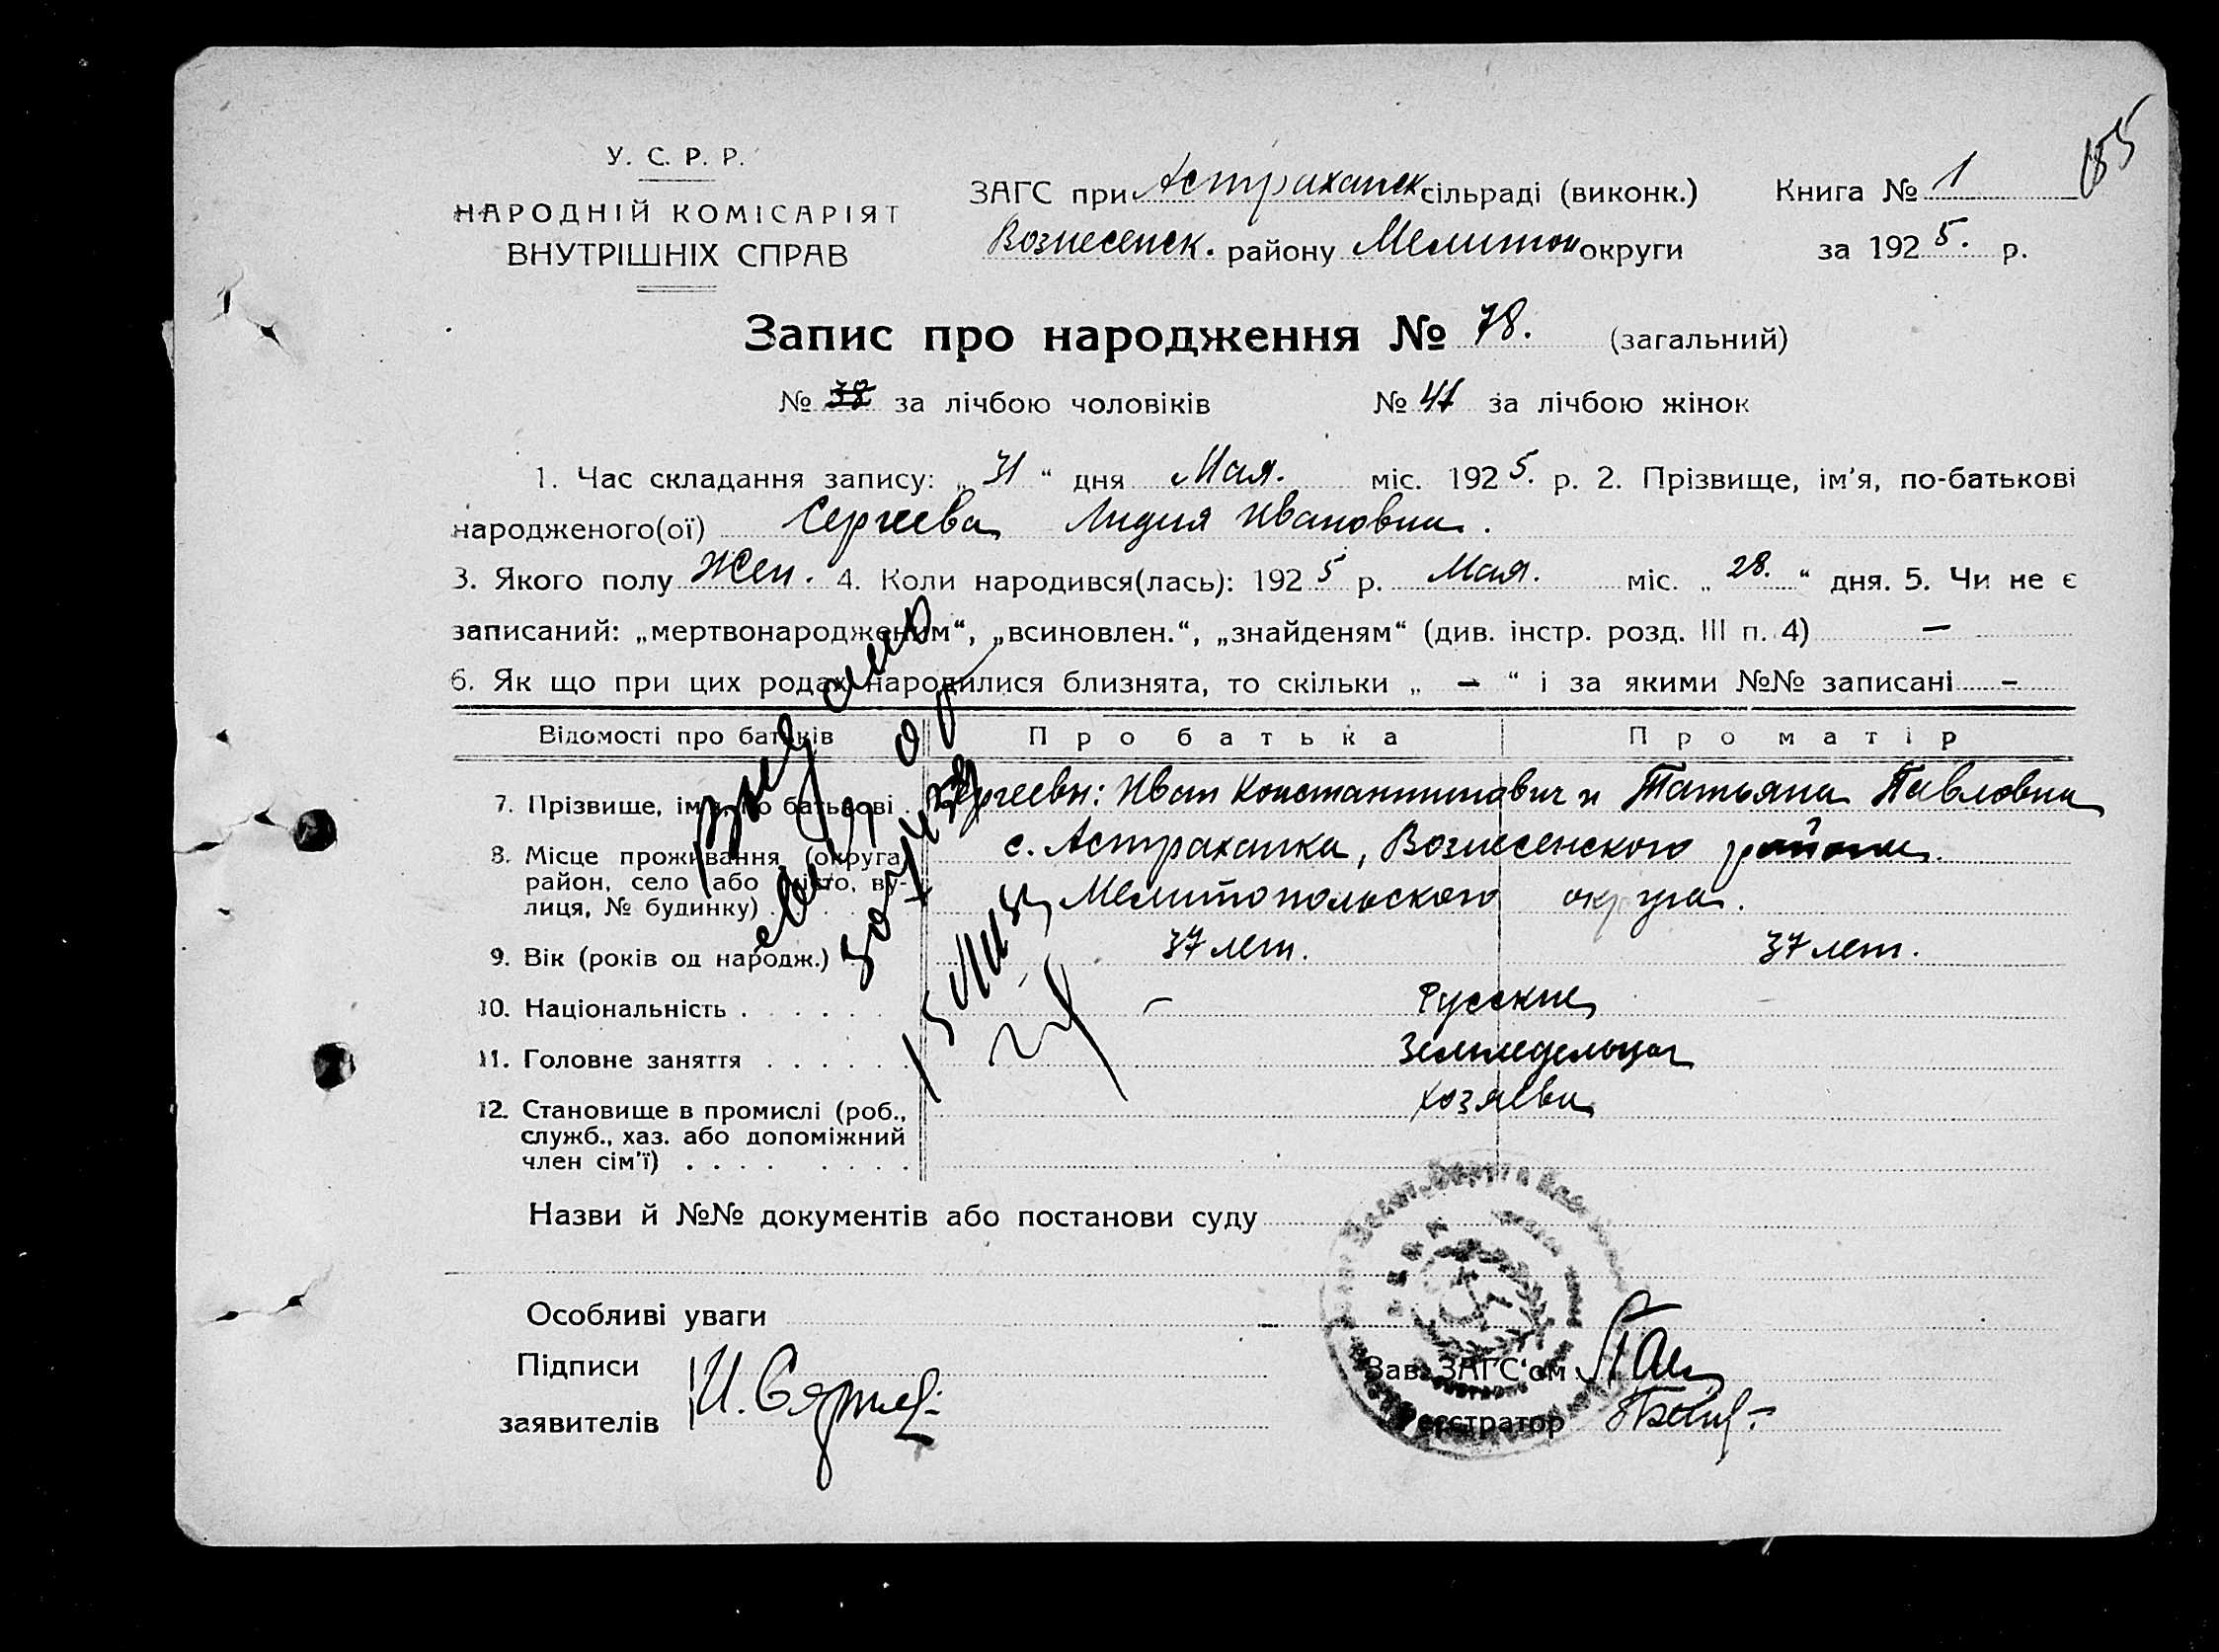 185
У. С. Р. Р.
НАРОДНІЙ КОМІСАРІЯТ
ВНУТРІШНІХ СПРАВ
ЗАГС при Астраханск сільраді (виконк.) Книга № 1
Вознесенск. району Мелитоп округи за 1925. р.
Запис про народження № 78. (загальний)
№ 38 за лічбою чоловіків № 41 за лічбою жінок
1. Час складання запису: „31“ дня Мая. міс. 1925. р. 2. Прізвище, ім'я, по-батькові
народженого(ої) Сергеева Лидия Ивановна.
3. Якого полу Жен. 4. Коли народився(лась): 1925 р. Мая. міс. „28.“ дня. 5. Чи не є
записаний: „мертвонародженим“, „всиновлен.“, „знайденям“ (див. інстр. розд. III п. 4) —
6. Як що при цих родах народилися близнята, то скільки „ — “ і за якими №№ записані —
Відомості про батьків Про батька Про матір
7. Прізвище, ім'я, по батькові Сергеевы: Иван Константинович и Татьяна Павловна
8. Місце проживання (округа, с. Астраханка, Вознесенского района
район, село або місто, ву- Мелитопольского округа.
лиця, № будинку)
9. Вік (років од народж.) 37 лет. 37 лет.
10. Національність — Русские
11. Головне заняття Земледельцы
12. Становище в промислі (роб., хозяева
служб., хаз. або допоміжний
член сім'ї)
Назви й №№ документів або постанови суду
Особливі уваги —
Підписи И. Сергеев Зав. ЗАГС'ом
заявителів Реєстратор